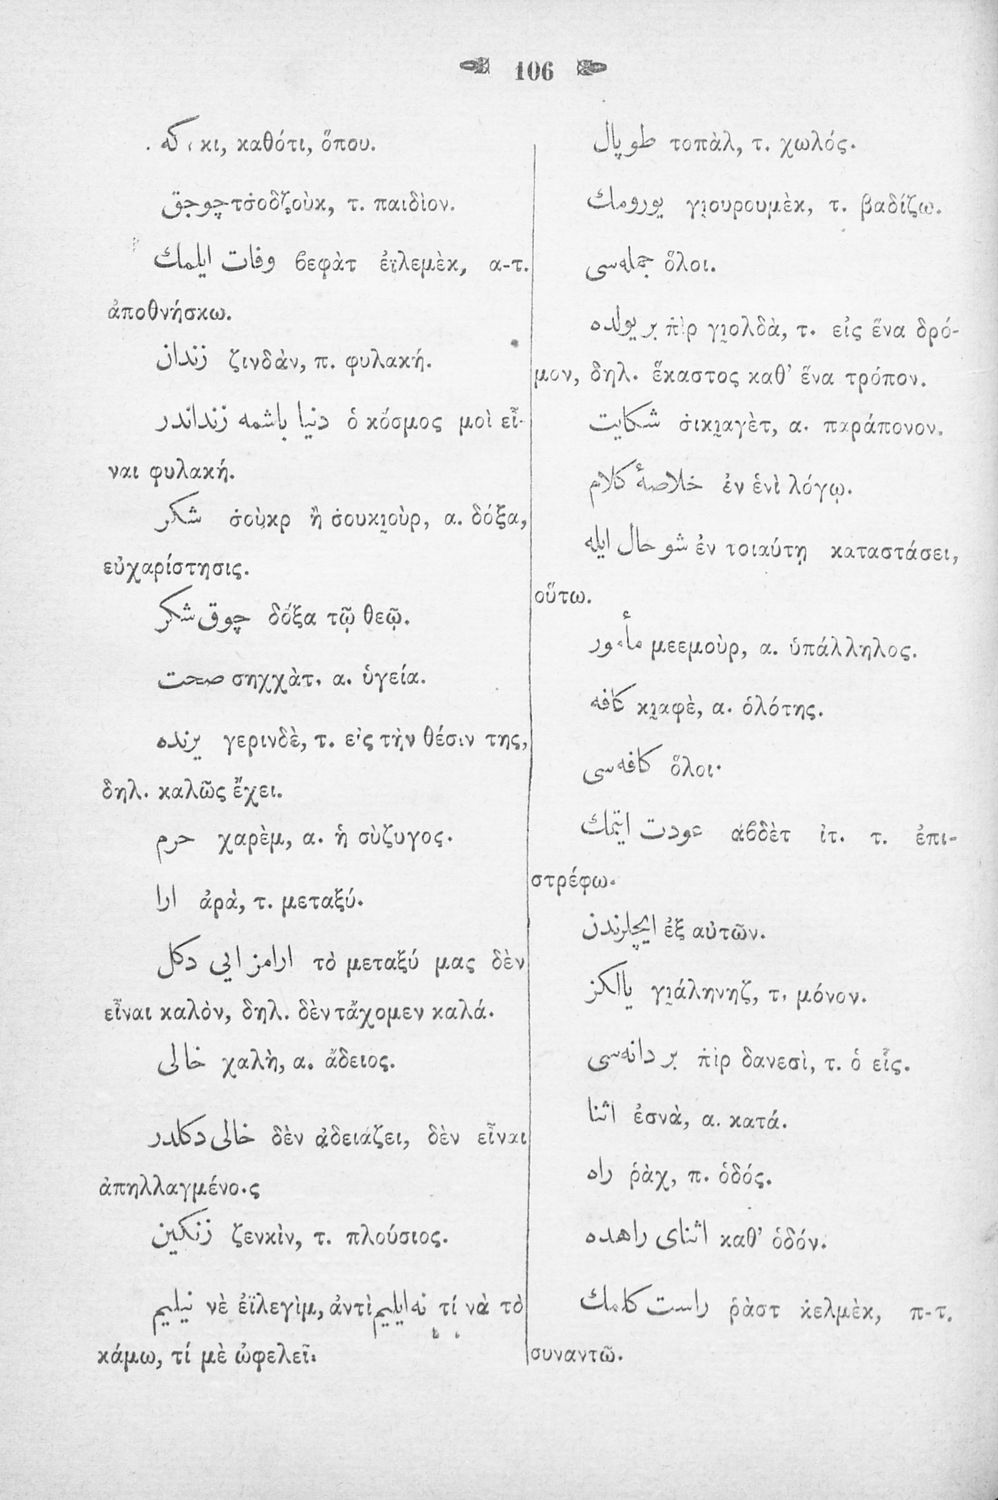 106
كه، κι, καθότι, ὅπου.
چوجق τσ̇οδζοὺκ, τ. παιδὶον.
وفات ايلمك βεφὰτ ἐϊλεμὲκ, α-τ.
ἀποθνήσκω.
زندان ζινδὰν, π. φυλακή.
دنيا باشمه زنداندر ὁ κόσμος μοὶ εἶ-
ναι φυλακή.
شكر σ̇οὺκρ ἢ σ̇ουκι̯οὺρ, α. δόξα,
εὐχαρίστησις.
چوق شكر δόξα τῷ θεῷ.
صحت σηχχὰτ, α. ὑγεία.
يرنده γερινδὲ, τ. εἰς τὴν θέσιν της,
δηλ. καλῶς ἔχει.
حرم χαρὲμ, α. ἡ σὺζυγος.
ارا ἀρὰ, τ. μεταξύ.
ارامز ايى دكل τὸ μεταξύ μας δὲν
εἶναι καλὸν, δηλ. δὲν τἄχομεν καλά.
خالى χαλὴ, α. ἄδειος.
خالى دكلدر δὲν ἀδειάζει, δὲν εἶναι
ἀπηλλαγμένο.ς
زنكين ζενκὶν, τ. πλούσιος.
نيليم νὲ ἐϊλεγὶμ, ἀντὶ نه ايليم τί νὰ τὸ
κάμω, τί μὲ ὠφελεῖ.
طوپال τοπὰλ, τ. χωλός.
يورومك γι̯ουρουμὲκ, τ. βαδίζω.
جمله سى ὅλοι.
بر يولده π̇ὶρ γι̯ολδὰ, τ. εἰς ἕνα δρό-
μον, δηλ. ἕκαστος καθ’ ἕνα τρόπον.
شكايت σ̇ικι̯αγὲτ, α. παράπονον.
خلاصۀ كلام ἐν ἑνὶ λόγῳ.
شو حال ايله ἐν τοιαύτῃ καταστάσει,
οὕτω.
مأمور μεεμοὺρ, α. ὑπάλληλος.
كافه κι̯αφὲ, α. ὁλότης.
كافه سى ὅλοι·
عودت ايتمك ἀβδὲτ ἰτ. τ. ἐπι-
στρέφω.
ايچلرندن ἐξ αὐτῶν.
يالكز γι̯άληνηζ, τ, μόνον.
بر دانه سى π̇ὶρ δανεσὶ, τ. ὁ εἷς.
اثنا ἐσνὰ, α. κατά.
راه ῥὰχ, π. ὁδός.
اثناى راهده καθ’ ὁδόν.
راست كلمك ῥὰστ κ̇ελμὲκ, π-τ.
συναντῶ.